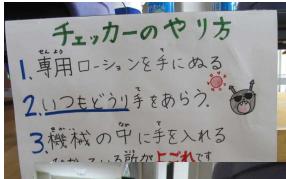 チェッカーのやり方
せんよう て
1.専用ローションを手にぬる
て
2.いつもどうり手をあらう.
きかい なか て
3.機械の中に手を入れる
いる所がよごれです